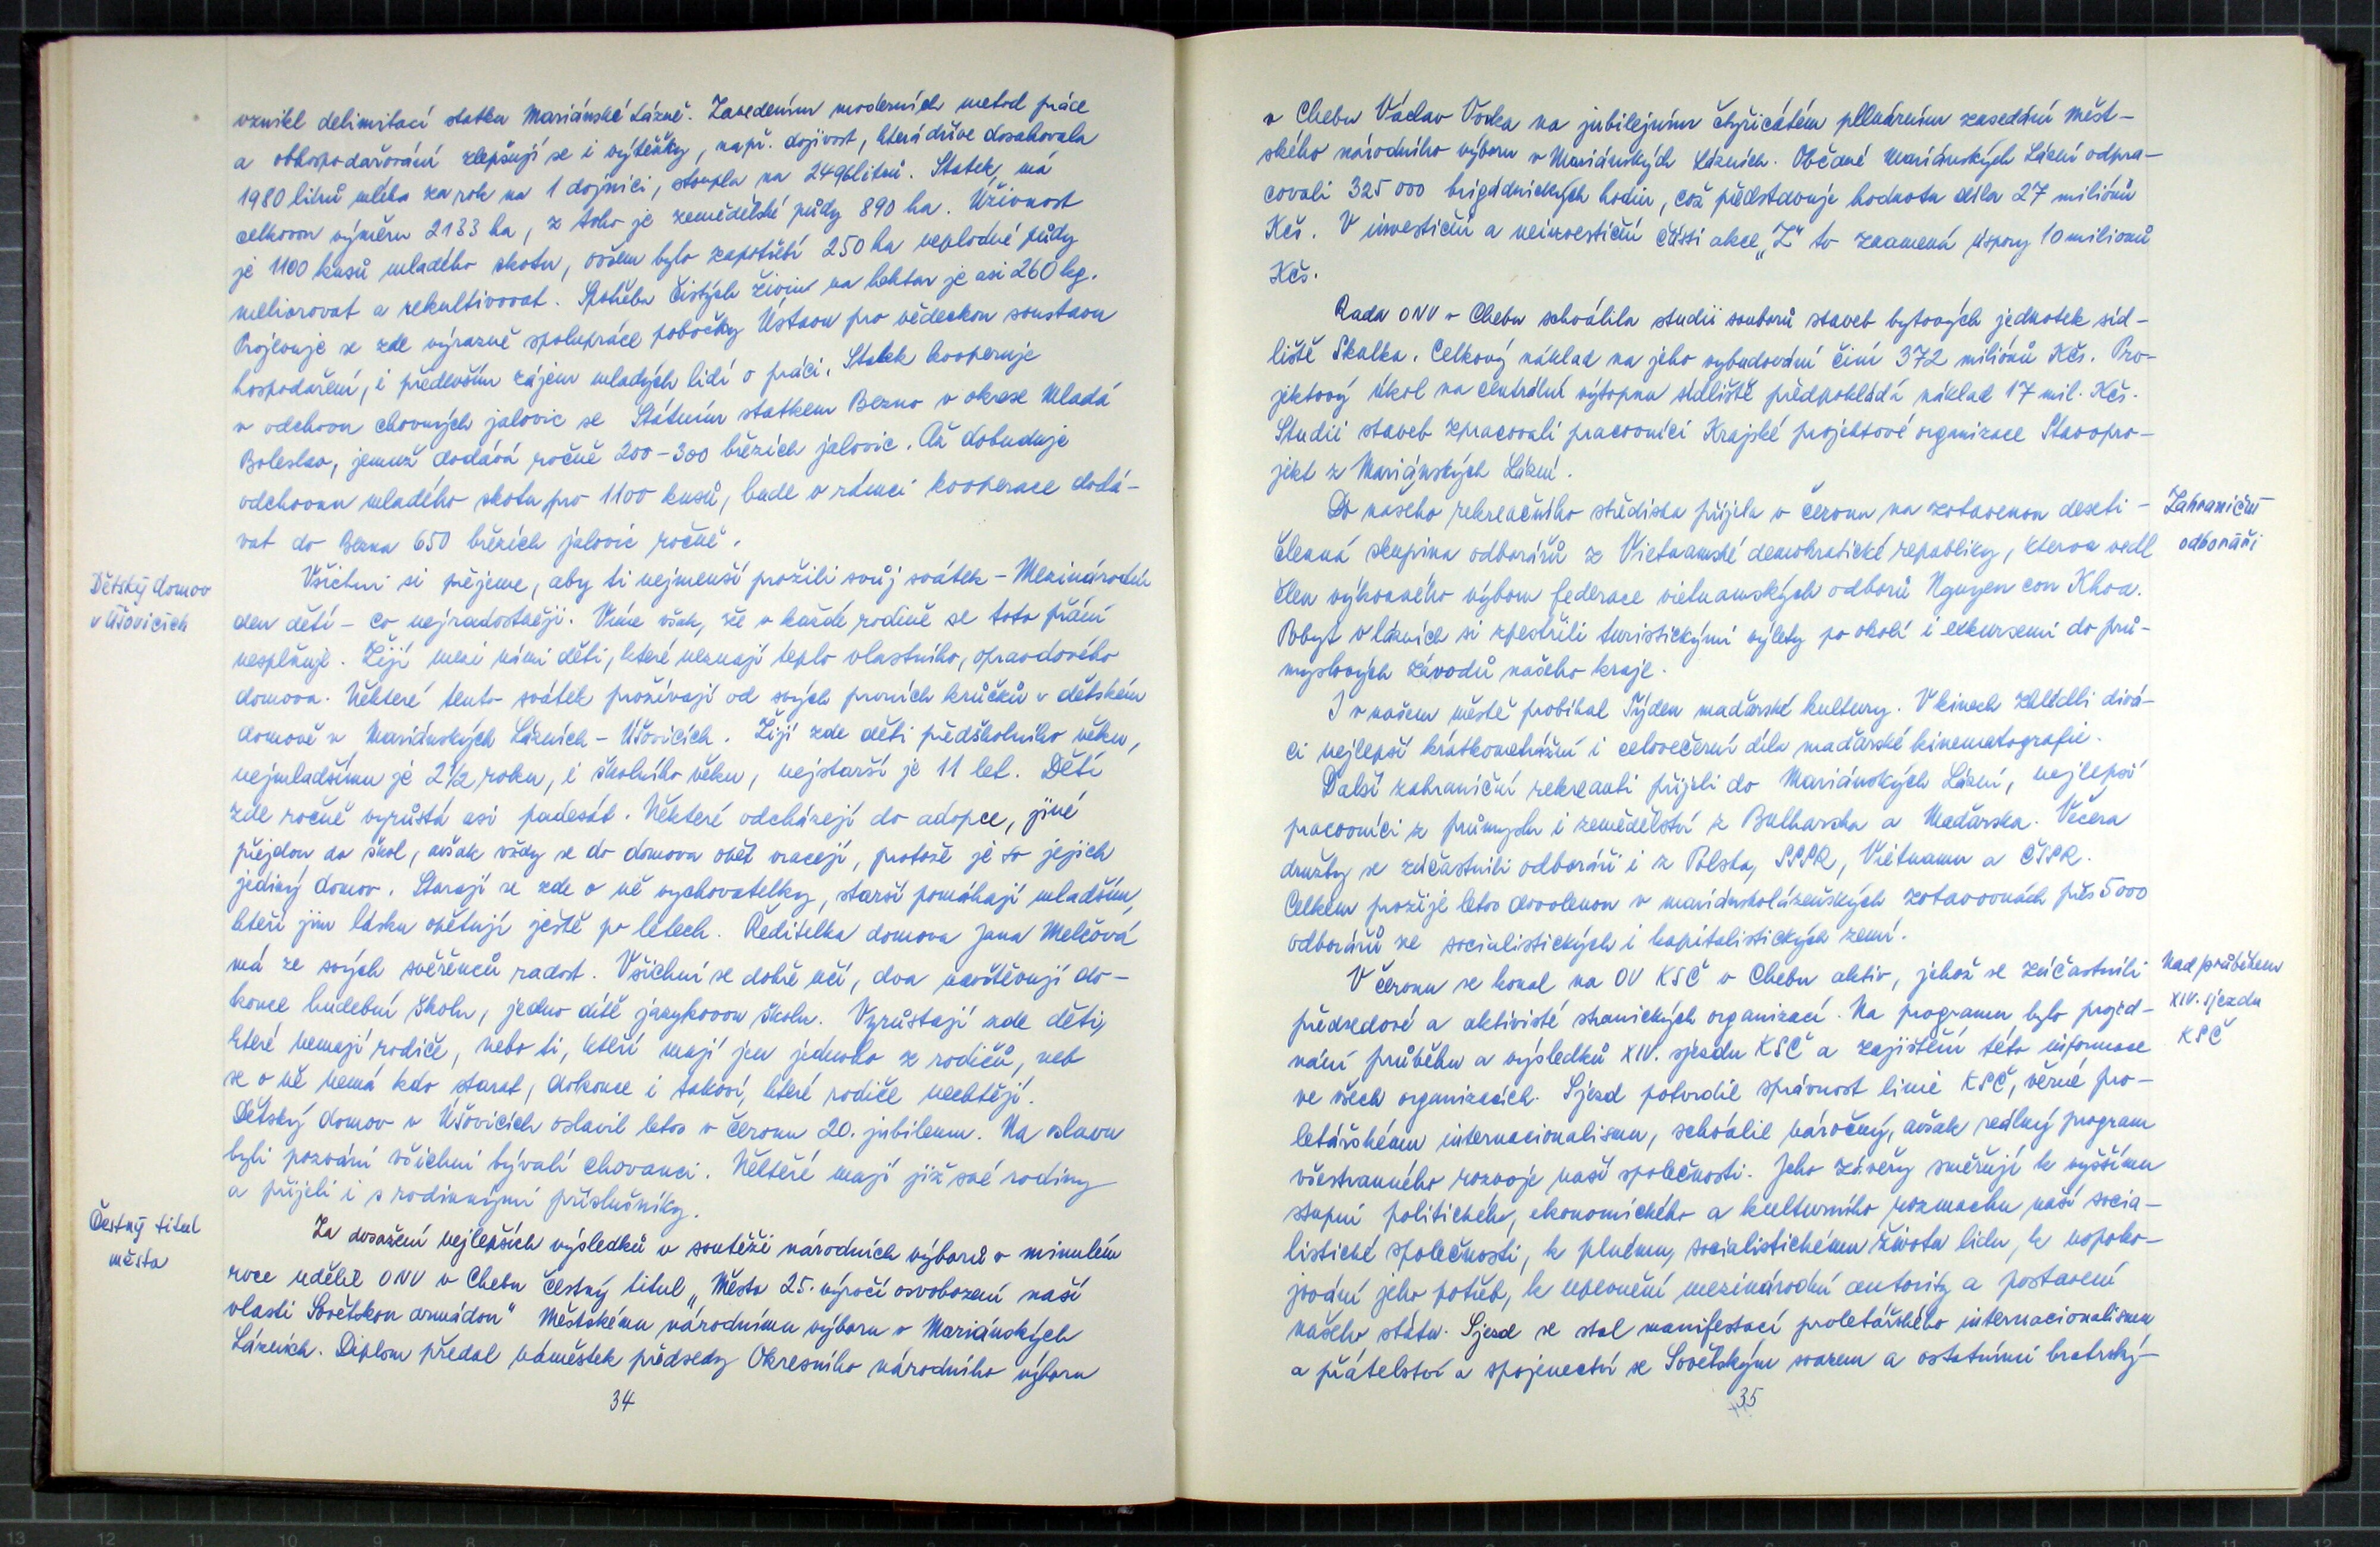 vznikl delimitací statku Mariánské Lázně. Zavedením moderních metod práce
a obhospodařování zlepšují se i výtěžky, např. dojivost, která dříve dosahovala
1980 litrů mléka za rok na 1 dojnici, stoupla na 2496 litrů. Statek má
celkovou výměru 2133 ha, z toho je zemědělské půdy 890 ha. Úživnost
je 1100 kusů mladého skotu, ovšem bylo zapotřebí 250 ha neplodné půdy
meliorovat a rekultivovat. Spotřeba čistých živin na hektar je asi 260 kg.
Projevuje se zde výrazně spolupráce pobočky Ústavu pro vědeckou soustavu
hospodaření, i především zájem mladých lidí o práci. Statek kooperuje
v odchovu chovných jalovic se Státním statkem Bezno v okrese Mladá
Boleslav, jemuž dodává ročně 200-300 březích jalovic. Až dobuduje
odchovnu mladého skotu pro 1100 kusů, bude v rámci kooperace dodá-
vat do Bezna 650 březích jalovic ročně.
Dětský domov
v Úšovicích
Všichni si přejeme, aby ti nejmenší prožili svůj svátek - Mezinárodní
den dětí - co nejradostněji. Víme však, že v každé rodině se toto přání
nesplňuje. Žijí mezi námi děti, které neznají teplo vlastního, opravdového
domova. Některé tento svátek prožívají od svých prvních krůčků v dětském
domově v Mariánských Lázních - Úšovicích. Žijí zde děti předškolního věku,
nejmladšímu je 2½ roku, i školního věku, nejstarší je 11 let. Dětí
zde ročně vyrůstá asi padesát. Některé odcházejí do adopce, jiné
přejdou do škol, avšak vždy se do domova opět vracejí, protože je to jejich
jediný domov. Starají se zde o ně vychovatelky, starší pomáhají mladším,
kteří jim lásku opětují ještě po letech. Ředitelka domova Jana Melčová
má ze svých svěřenců radost. Všichni se dobře učí, dva navštěvují do-
konce hudební školu, jedno dítě jazykovou školu. Vyrůstají zde děti,
které nemají rodiče, nebo ti, kteří mají jen jednoho z rodičů, neb
se o ně nemá kdo starat, dokonce i takoví, které rodiče nechtějí.
Dětský domov v Úšovicích oslavil letos v červnu 20. jubileum. Na oslavu
byli pozváni všichni bývalí chovanci. Některé mají již své rodiny
a přijeli i s rodinnými příslušníky.
Čestný titul
města
Za dosažení nejlepších výsledků v soutěži národních výborů v minulém
roce udělil ONV v Chebu čestný titul „Města 25. výročí osvobození naší
vlasti Sovětskou armádou" Městskému národnímu výboru v Mariánských
Lázních. Diplom předal náměstek předsedy Okresního národního výboru
34
v Chebu Václav Voska na jubilejním čtyřicátém pllnárním zasedání Měst-
ského národního výboru v Mariánských Lázních. Občané Mariánských Lázní odpra-
covali 325 000 brigádnických hodin, což představuje hodnotu díla 27 miliónů
Kčs. V investiční a neinvestiční části akce „Z" to znamená úspory 10 milionů
Kčs.
Rada ONV v Chebu schválila studii souborů staveb bytových jednotek síd-
liště Skalka. Celkový náklad na jeho vybudování činí 372 miliónů Kčs. Pro-
jektový úkol na centrální výtopnu sídliště předpokládá náklad 17 mil. Kčs.
Studii staveb zpracovali pracovníci Krajské projektové organizace Stavopro-
jekt z Mariánských Lázní.
Do našeho rekreačního střediska přijela v červnu na zotavenou deseti-
členná skupina odborářů z Vietnamské demokratické republiky, kterou vedl
člen výkonného výboru federace vietnamských odborů Nguyen con Khoa.
Pobyt v lázních si zpestřili turistickými výlety po okolí i exkursemi do prů-
myslových závodů našeho kraje.
Zahraniční
odboráři
I v našem městě probíhal Týden maďarské kultury. V kinech zhlédli divá-
ci nejlepší krátkometrážní i celovečerní díla maďarské kinematografie.
Další zahraniční rekreanti přijeli do Mariánských Lázní, nejlepší
pracovníci z průmyslu i zemědělství z Bulharska a Maďarska. Večera
družby se zúčastnili odboráři i z Polska, SSSR, Vietnamu a ČSSR.
Celkem prožije letos dovolenou v mariánskolázeňských zotavovnách přes 5000
odborářů ze socialistických i kapitalistických zemí.
V červnu se konal na OV KSČ v Chebu aktiv, jehož se zúčastnili
předsedové a aktivisté stranických organizací. Na programu bylo projed-
nání průběhu a výsledků XIV. sjezdu KSČ a zajištění této informace
ve všech organizacích. Sjezd potvrdil správnost linie KSČ, věrné pro-
letářskému internacionalismu, schválil náročný, avšak reálný program
všestranného rozvoje naší společnosti. Jeho závěry směřují k vyššímu
stupni politického, ekonomického a kulturního rozmachu naší socia-
listické společnosti, k plnému, socialistickému životu lidu, k uspoko-
jování jeho potřeb, k upevnění mezinárodní autority a postavení
našeho státu. Sjezd se stal manifestací proletářského internacionalismu
a přátelství a spojenectví se Sovětským svazem a ostatními bratrský-
Nad průběhem
XIV. sjezdu
KSČ
35